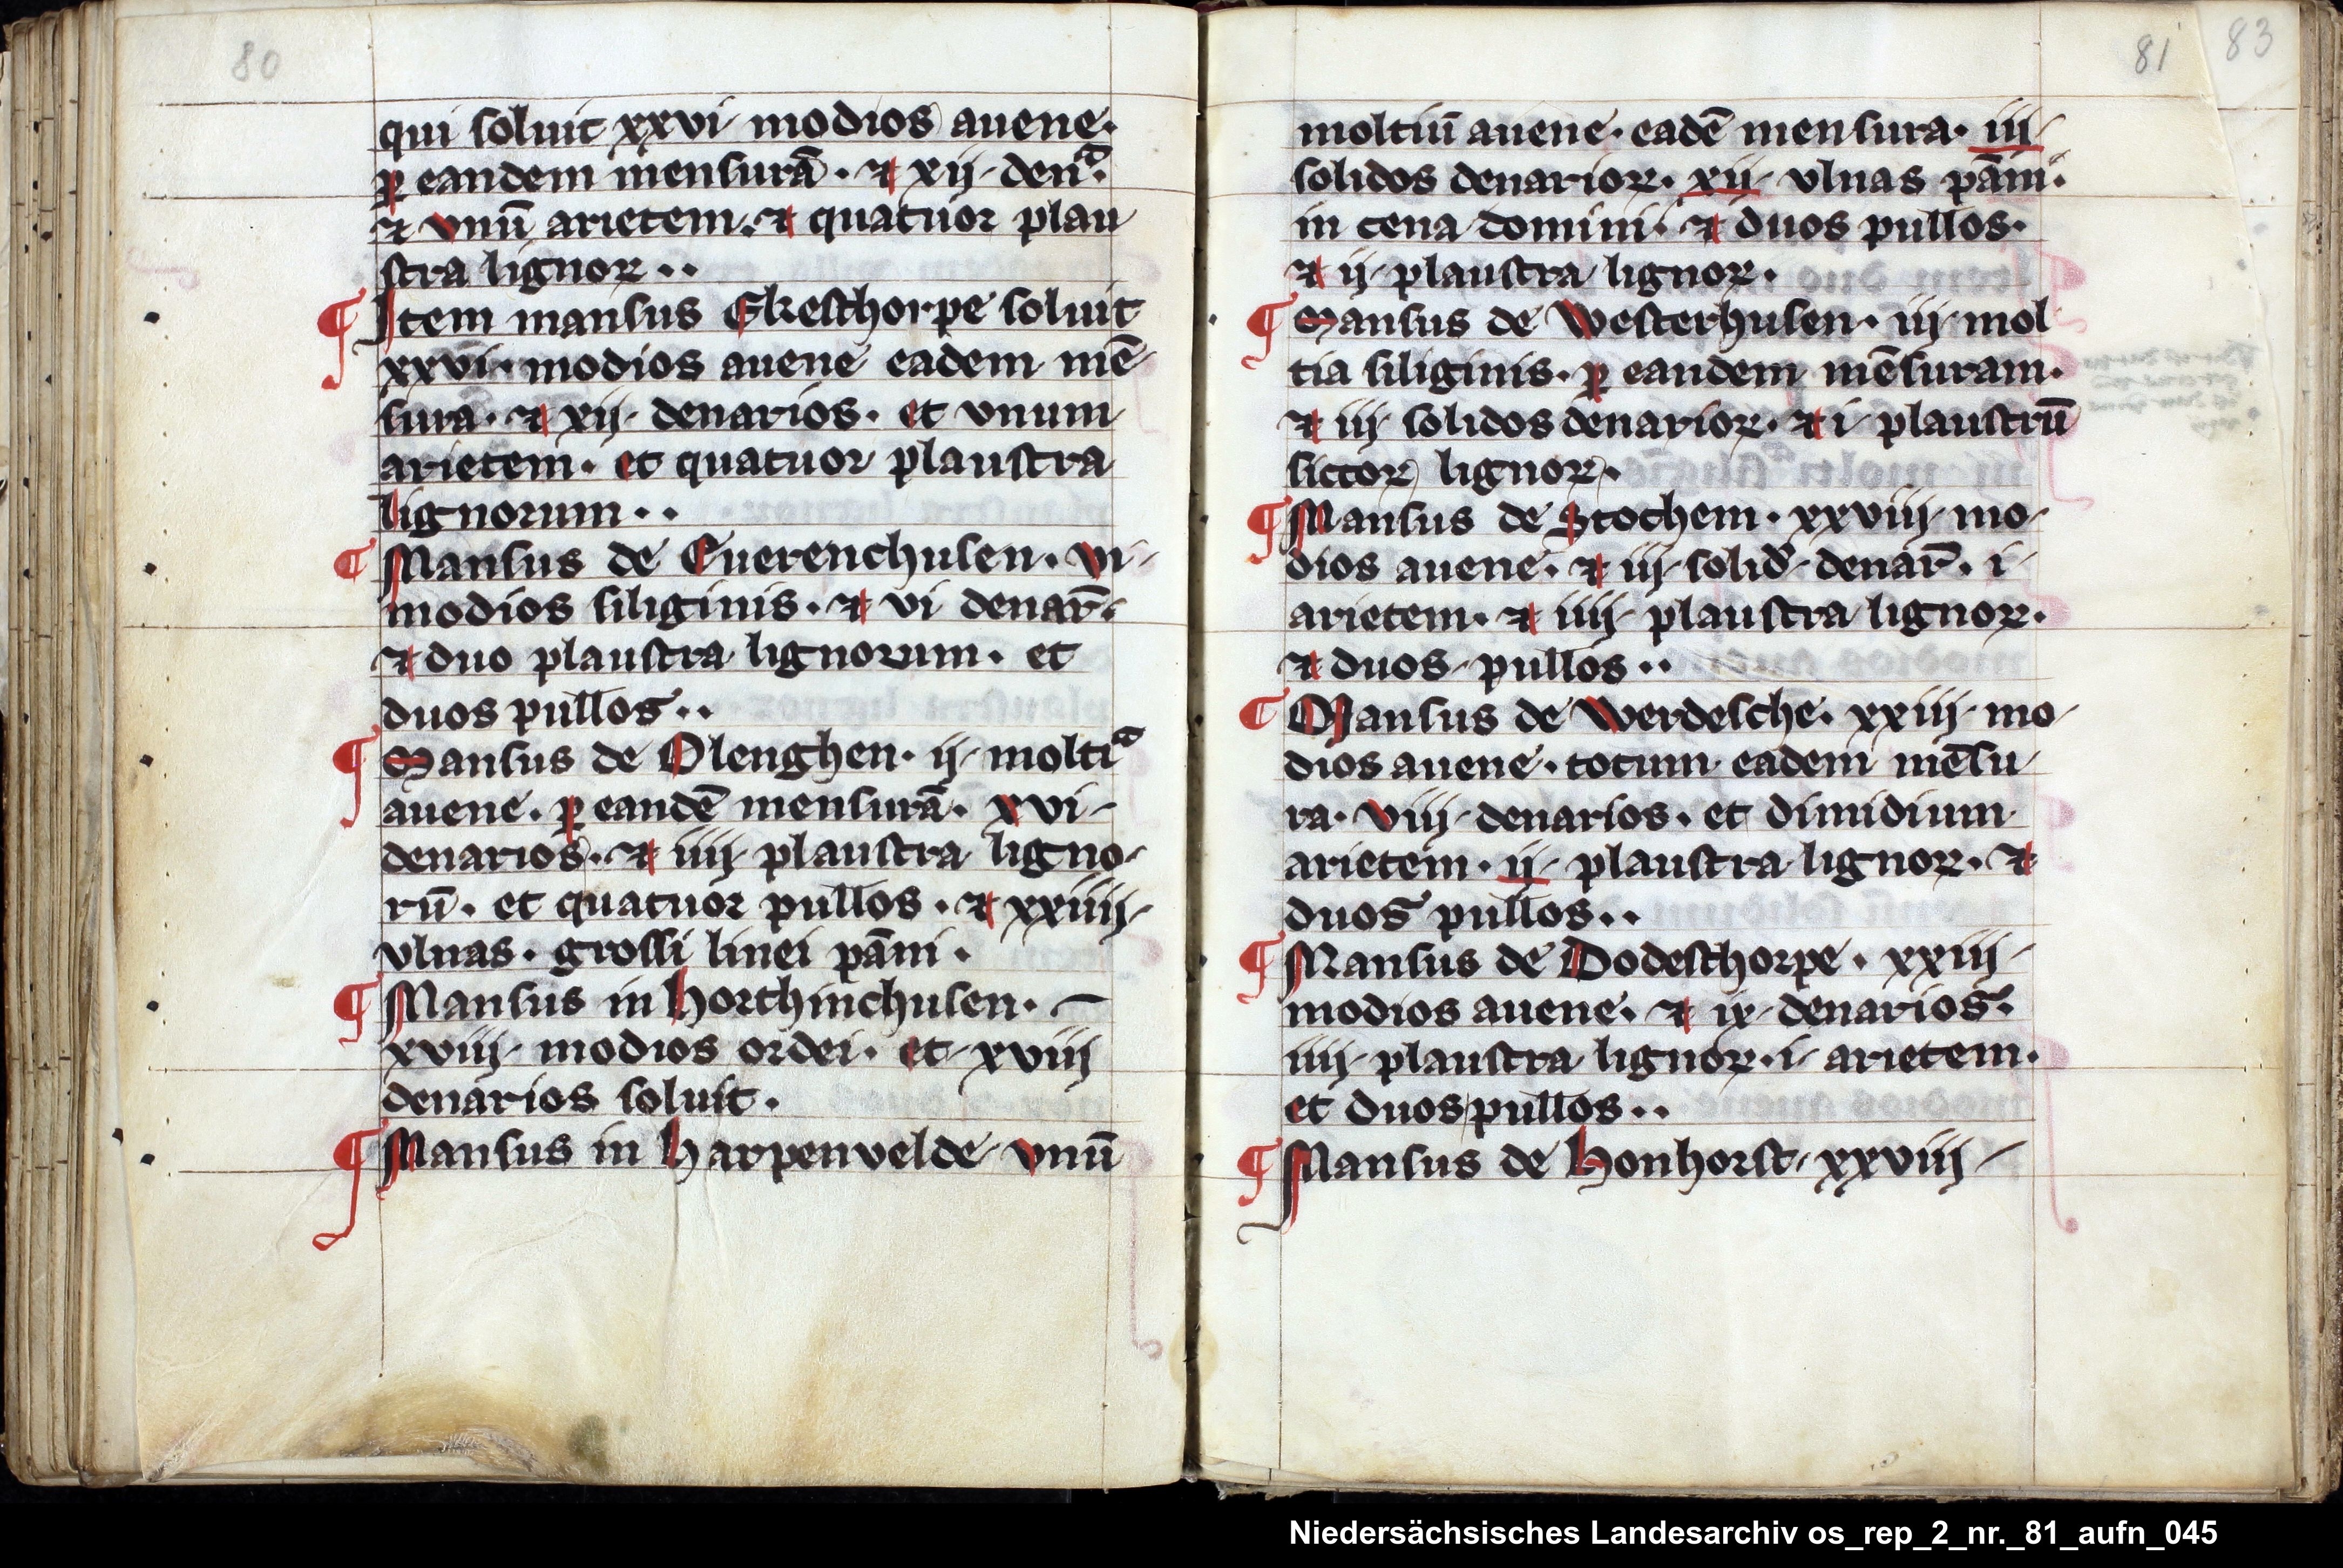 80
qui soluit xxvi modios auene.
ꝑ eandem mensurā. ⁊ xij den.ᵃ
⁊ vnū arietem. ⁊ quatuor plau
stra lignoꝝ..
¶ Item mansus Ekesthorpe soluit
xxvi. modios auene eadem mē
sura. ⁊ xij denarios. et vnum
arietem. et quatuor plaustra
lignorum..
¶ Mansus de Euerenchusen. vi
modios siliginis. ⁊ vi denar̄.
⁊ duo plaustra lignorum. et
duos pullos..
¶ Mansus de Olenghen. ij moltiᵃ
auene. ꝑ eandē mensurā. xvi
denarios. ⁊ iiij plaustra ligno
rū. et quatuor pullos. ⁊ xxiiij
vlnas. grossi linei pāni.
¶ Mansus in horthinchusen.
xviij modios ordei. et xviij
denarios soluit.
¶ Mansus in harpenvelde vnū
81 83
moltiū auene. eadē mensura. iij
solidos denarioꝝ. xij vlnas pāni.
in cena domini. ⁊ duos pullos.
⁊ ij plaustra lignoꝝ.
¶ Mansus de Westerhusen. iij mol
tia siliginis. ꝑ eandem mēsuram.
⁊ iij solidos denarioꝝ. ⁊ i plaustrū
sictoꝝ lignoꝝ.
¶ Mansus de Stochem. xxviij mo
dios auene. ⁊ iij solid denar̄. i
arietem. ⁊ iiij plaustra lignoꝝ.
⁊ duos pullos..
¶ Mansus de Werdesche. xxiij mo
dios auene. totum eadem mēsu
ra. viij denarios. et dimidium
arietem. ij plaustra lignoꝝ. ⁊
duos pullos..
¶ Mansus de Dodesthorpe. xxiij
modios auene. ⁊ ix denarios.
iiij plaustra lignoꝝ. i arietem.
et duos pullos..
¶ Mansus de honhorst. xxviij
Niedersächsisches Landesarchiv os_rep_2_nr._81_aufn_045